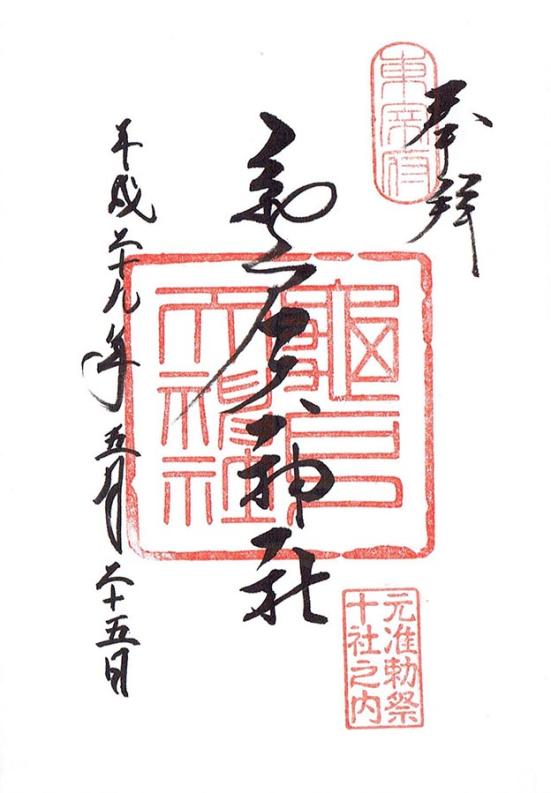 奉拝
東宰府
亀戸天神社
龜戸
天神社
元准勅祭
十社之内
平成二十九年五月二十五日